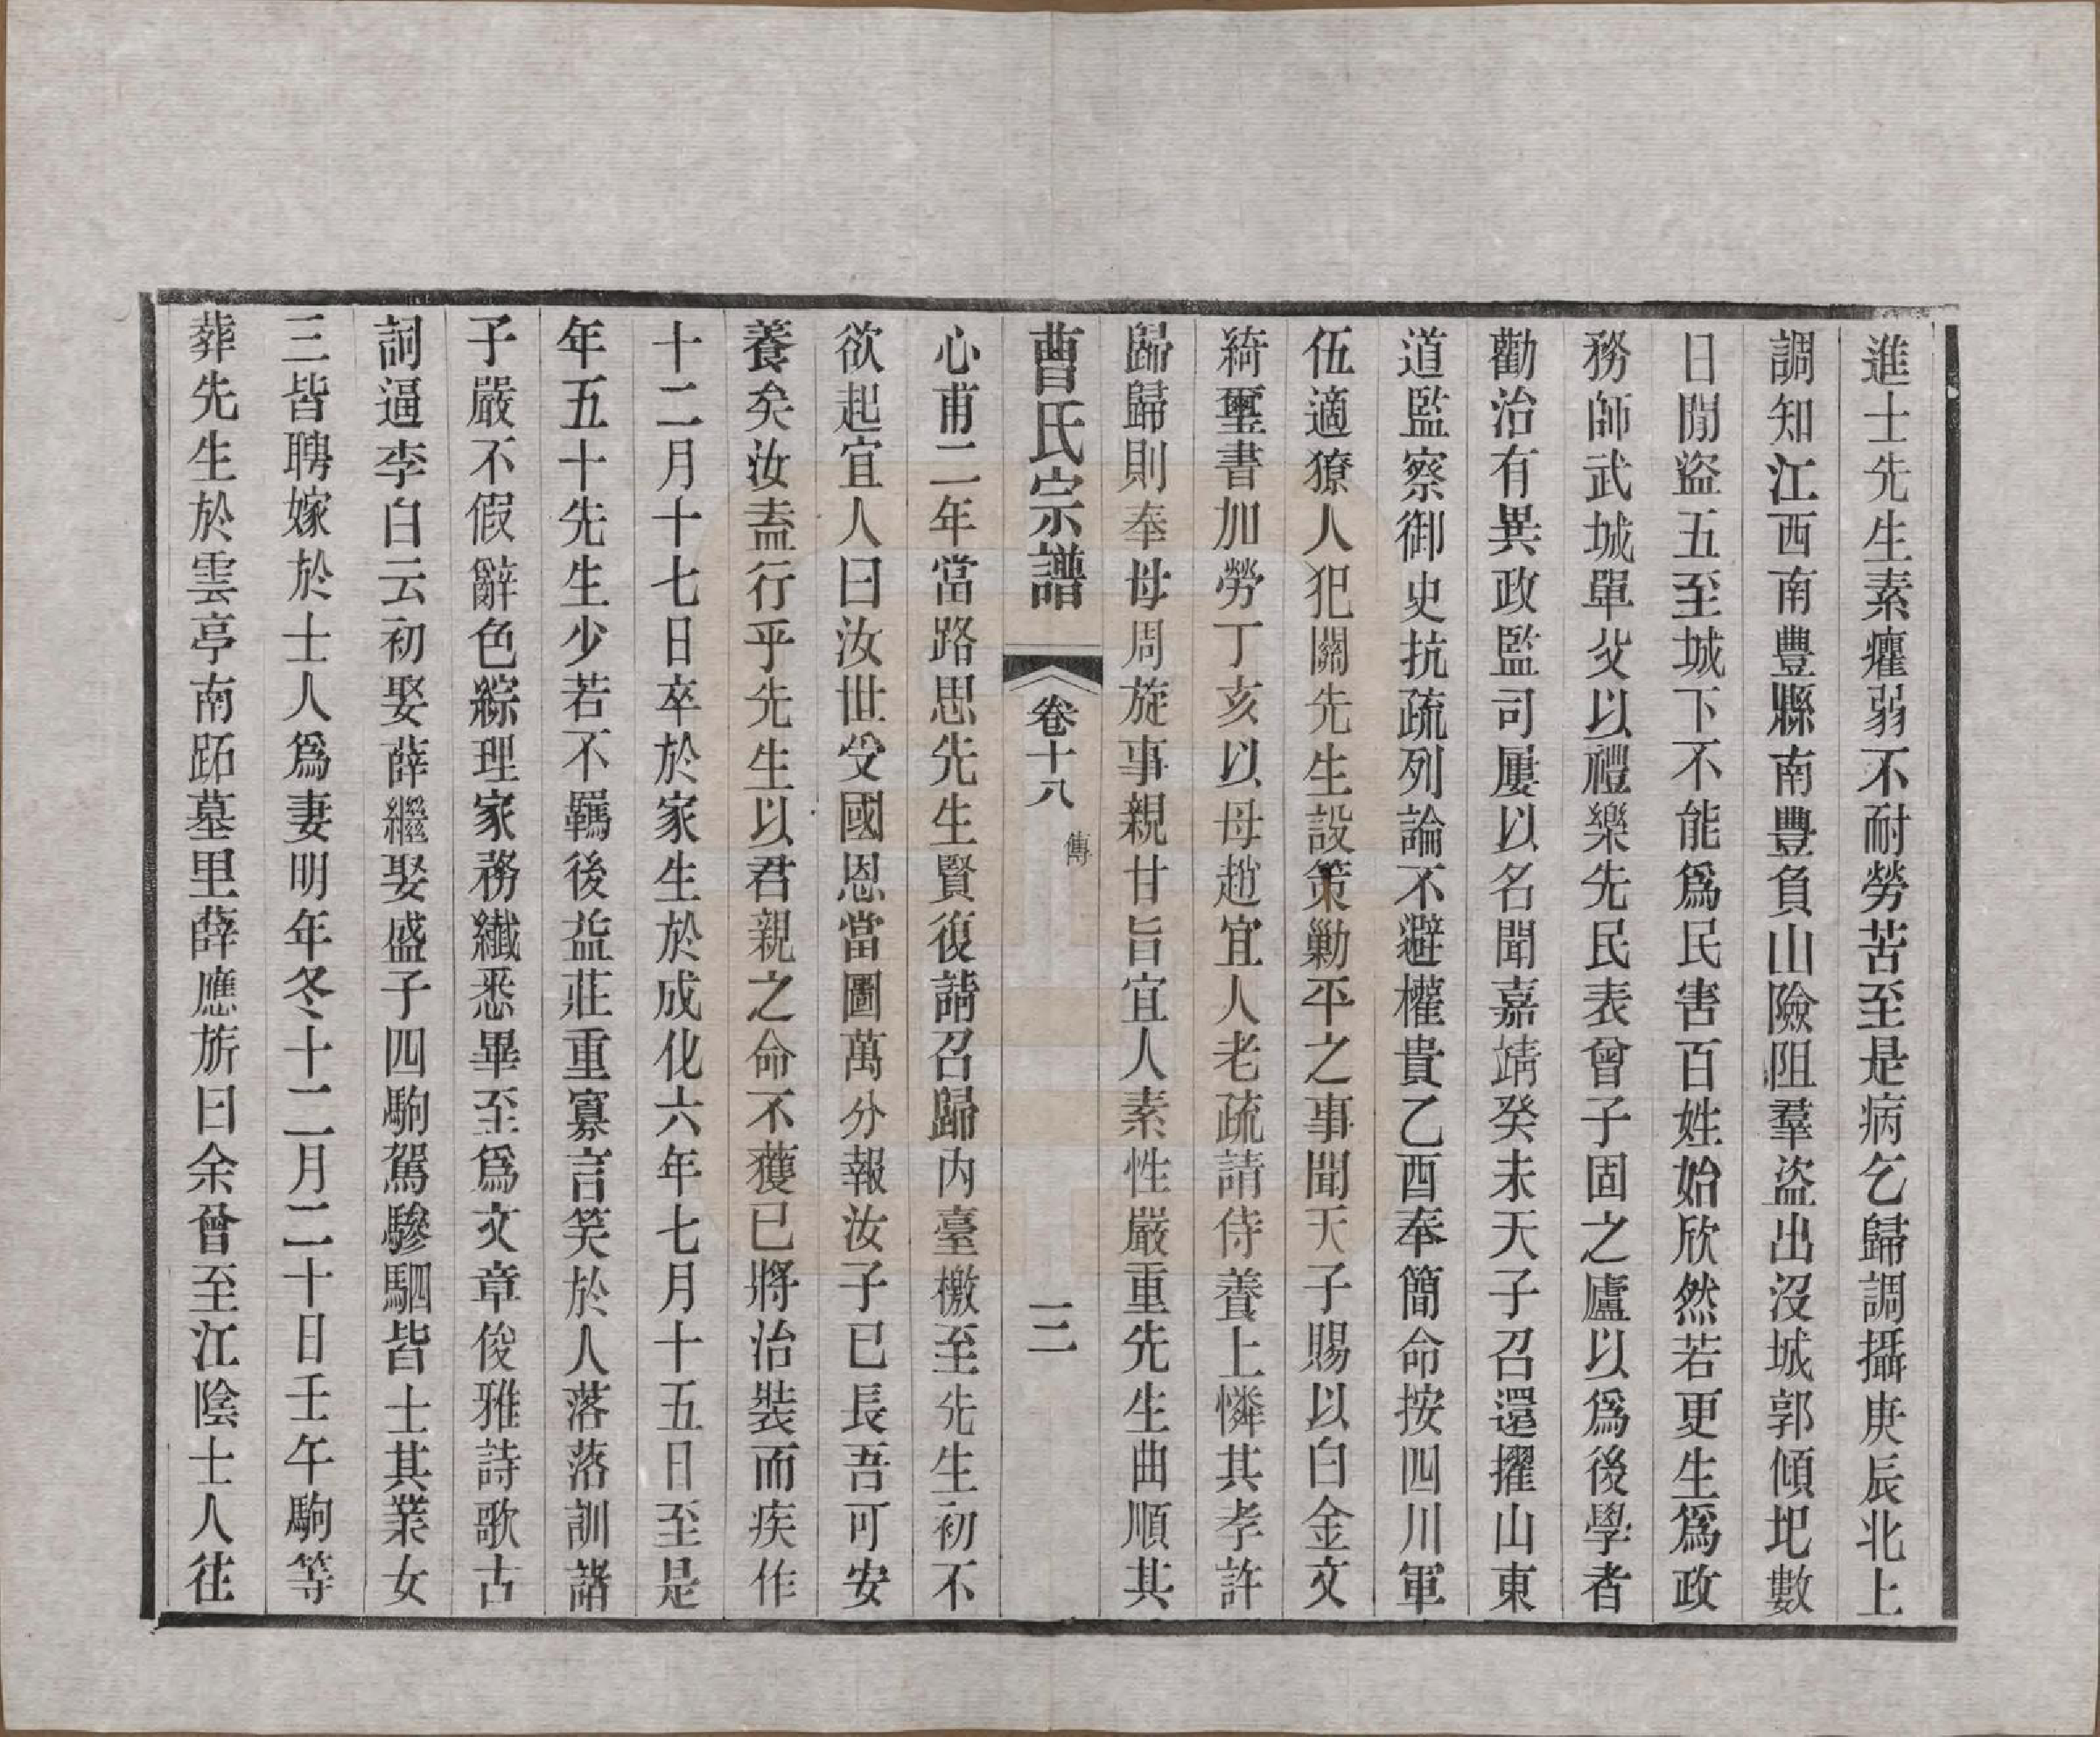 進士先生素癯弱不耐勞苦至是病乞歸調攝庚辰北上
調知江西南豐縣南豐負山險阻羣盜出沒城郭傾圯數
日閒盜五至城下不能爲民害百姓始欣然若更生爲政
務師武城單父以禮樂先民表曾子固之廬以爲後學者
勸治有異政監司屢以名聞嘉靖癸未天子召還擢山東
道監察御史抗疏列論不避權貴乙酉奉簡命按四川軍
伍適獠人犯關先生設策勦平之事聞天子賜以白金文
綺璽書加勞丁亥以母趙宜人老疏請侍養上憐其孝許
歸歸則奉母周旋事親甘旨宜人素性嚴重先生曲順其
曹氏宗譜
卷十八
傳
二
心甫二年當路思先生賢復請召歸内臺檄至先生初不
欲起宜人曰汝世受國恩當圖萬分報汝子已長吾可安
養矣汝盍行乎先生以君親之命不獲已將治裝而疾作
十二月十七日卒於家生於成化六年七月十五日至是
年五十先生少若不羈後益莊重寡言笑於人落落訓諸
子嚴不假辭色綜理家務纖悉畢至爲文章俊雅詩歌古
詞逼李白云初娶薛繼娶盛子四駒駕驂駟皆士其業女
三皆聘嫁於士人爲妻明年冬十二月二十日壬午駒等
葬先生於雲亭南跖墓里薛應旂曰余曾至江陰士人往